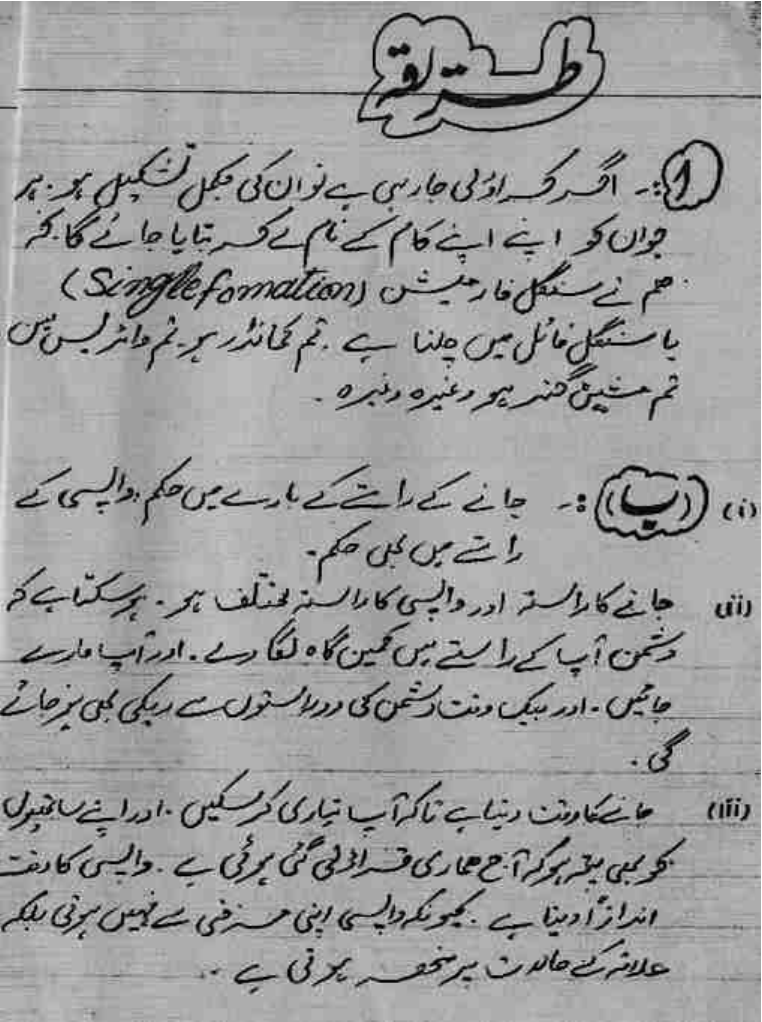 طریقہ
(1):۔ اگر قراولی جا رہی ہے تو ان کی مکمل تشکیل ہو۔ ہر
جوان کو اپنے اپنے کام کے نام لے کر بتایا جائے گا کہ
ہم نے سنگل فارمیشن (Single fomation)
یا سنگل فائل میں چلنا ہے ۔ تم کمانڈر ہو۔ تم وائرلیس مین
تم مشین گنر ہو وغیرہ وغیرہ ۔
(i) (ب) :۔ جانے کے راستے کے بارے میں حکم ، واپسی کے
راستے میں بھی حکم۔
(ii) جانے کا راستہ اور واپسی کا راستہ مختلف ہو ۔ ہو سکتا ہے کہ
دشمن آپ کے راستے میں کمین گاہ لگا دے ۔ اور آپ مارے
جائیں ۔ اور بیک وقت دشمن کی دو راستوں سے ریکی بھی ہو جائے
گی ۔
(iii) جانے کا وقت دینا ہے تاکہ آپ تیاری کر سکیں ۔ اور اپنے ساتھیوں
کو بھی پتہ ہو کہ آج ھماری قراولی گئی ہوئی ہے ۔ واپسی کا وقت
اندازاً دینا ہے ۔ کیونکہ واپسی اپنی مرضی سے نہیں ہوتی بلکہ
علاقہ کے حالات پر منحصر ہوتی ہے ۔۔